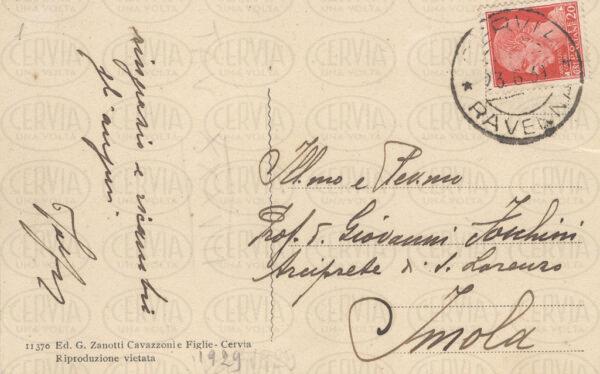 ringrazio e ricambio
gli auguri.
11376 Ed. G. Zanotti Cavazzoni e Figlie - Cervia
Riproduzione vietata
1929
Ill.mo e Rev.mo
Prof. D. Giovanni Foschini
Arciprete di S. Lorenzo
Imola
CERVIA
RAVENNA
20
CERVIA
UNA VOLTA